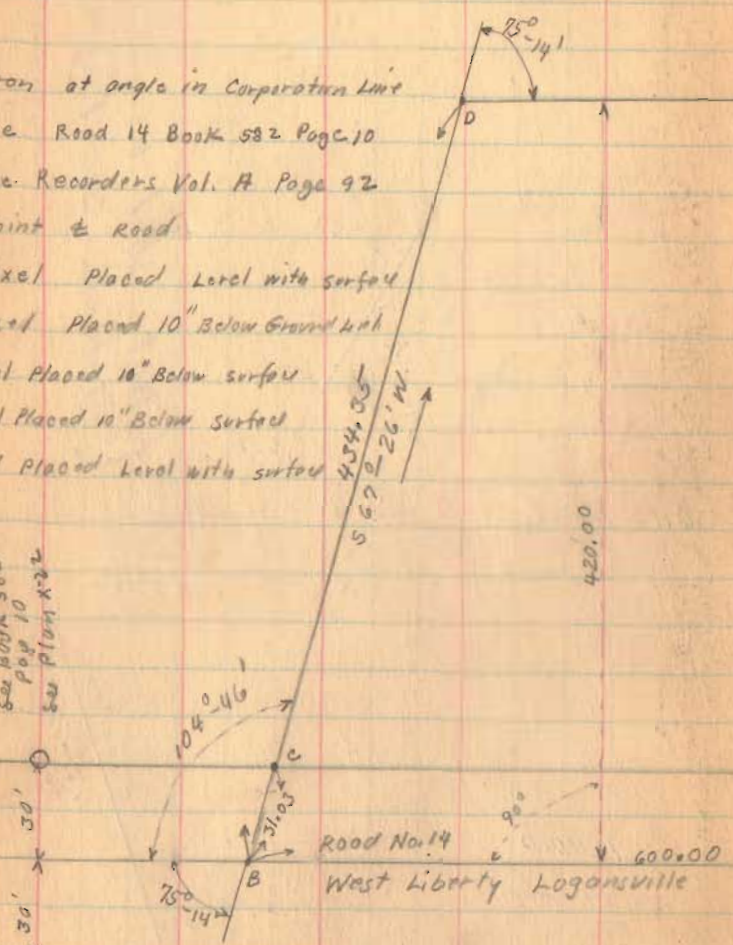 75°-14'
on at angle in Corporation Line
e Road 14 Book 582 Page 10
e. Recorders Vol. A Page 92
oint ₵ Road
xel Placed Level with surface
el Placed 10" Below Ground Line
l Placed 10" Below surface
l Placed 10" Below surface
l Placed Level with surface
D
434.35
S 67°-26' W.
420.00
See Book
pag 10
See plan x-22
104°-46'
C
31.03
30'
90°
Road No. 14
600.00
B
West Liberty Logansville
75°-14'
30'